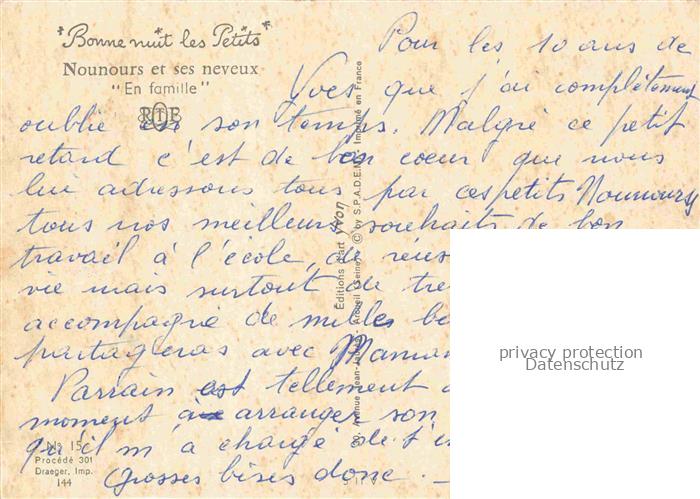 "Bonne nuit les Petits"
Nounours et ses neveux
"En famille"
RTB
Pour les 10 ans de
Yves que j'ai complètement
oublié en son temps. Malgré ce petit
retard c'est de bon coeur que nous
lui adressons tous par ces petits Nounours
tous nos meilleurs souhaits de bon
travail à l'école, de
vie mais surtout de
accompagné de milles
partageras avec Maman
Parrain est tellement
moment à arranger son
qu'il m'a chargé de t'
Grosses bises donc. -
Editions d'art yvon
Avenue Jean-Jaurès - Arcueil (Seine) © by S.P.A.D.E.M. Imprimé en France
No 15
Procédé 301
Draeger, Imp.
144
privacy protection
Datenschutz